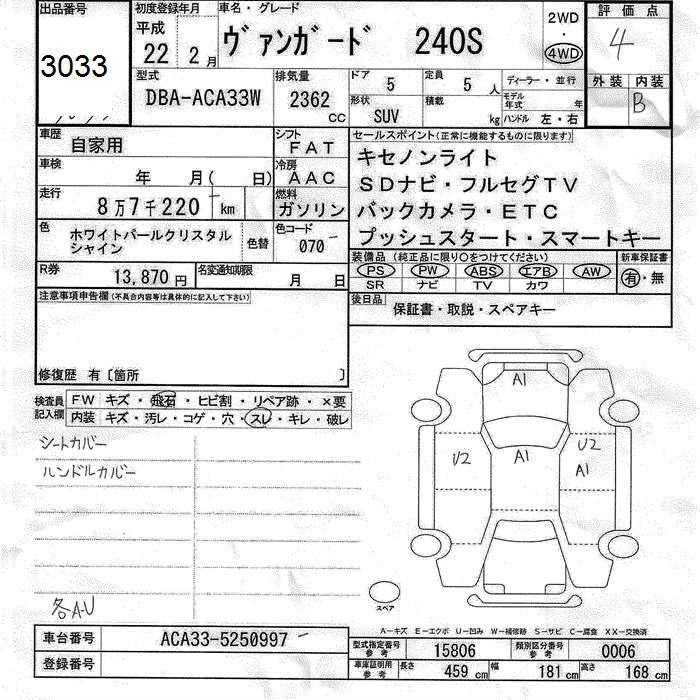 出品番号 初度登録年月 車名・グレード 2WD 評価点
平成 ヴァンガード 240S ・ 4
3033 22年 2月 4WD
型式 排気量 ドア 5 定員 5人 ディーラー・並行 外装 内装
DBA-ACA33W 2362cc 形状 SUV 積載 kg モデル年式 年 B
ハンドル 左・右
車歴 自家用 シフト FAT セールスポイント(正常に機能するものに限ります)
車検 年 月( 日) 冷房 AAC キセノンライト
走行 8万7千220km 燃料 ガソリン SDナビ・フルセグTV
色 ホワイトパールクリスタル 色替 色コード バックカメラ・ETC
シャイン 070 プッシュスタート・スマートキー
装備品 (純正品に限り○をつけてください) 新車保証書
R券 13,870円 名変通知期限 月 日 PS PW ABS エアB AW 有・無
SR ナビ TV カワ
注意事項申告欄(不具合内容等は具体的に記入して下さい) 後日品 保証書・取説・スペアキー
修復歴 有〔箇所 〕
検査員記入欄 FW キズ・飛石・ヒビ割・リペア跡・×要
内装 キズ・汚レ・コゲ・穴・スレ・キレ・破レ
シートカバー
ハンドルカバー
A1
U2 A1 U2
A1
各A・U
スペア
A-キズ E-エクボ U-凹み W-補修跡 S-サビ C-腐食 XX-交換済
車台番号 ACA33-5250997 型式指定番号参考 15806 類別区分番号参考 0006
登録番号 車庫証明用参考 長さ 459cm 幅 181cm 高さ 168cm